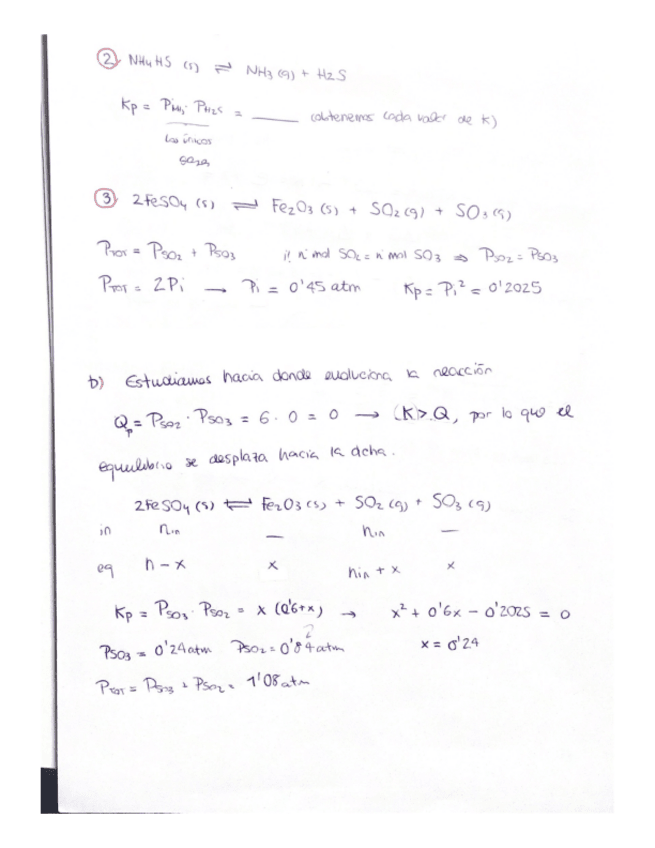 2) NH4HS (s) ⇌ NH3 (g) + H2S
Kp = PNH3 · PH2S = ______ (obtenemos cada valor de K)
los únicos
gases
3) 2FeSO4 (s) ⇌ Fe2O3 (s) + SO2 (g) + SO3 (g)
PTOT = PSO2 + PSO3    nº mol SO2 = nº mol SO3 ⇒ PSO2 = PSO3
PTOT = 2Pi → Pi = 0'45 atm    Kp = Pi² = 0'2025
b) Estudiamos hacia donde evoluciona la reacción
Qp = PSO2 · PSO3 = 6 · 0 = 0 → (K > Q, por lo que el
equilibrio se desplaza hacia la dcha.
2FeSO4 (s) ⇌ Fe2O3 (s) + SO2 (g) + SO3 (g)
in nin — nin —
eq n - x x nin + x x
Kp = PSO3 · PSO2 = x (0'6+x) → x² + 0'6x - 0'2025 = 0
PSO3 = 0'24 atm PSO2 = 0'84 atm x = 0'24
PTOT = PSO3 + PSO2 = 1'08 atm